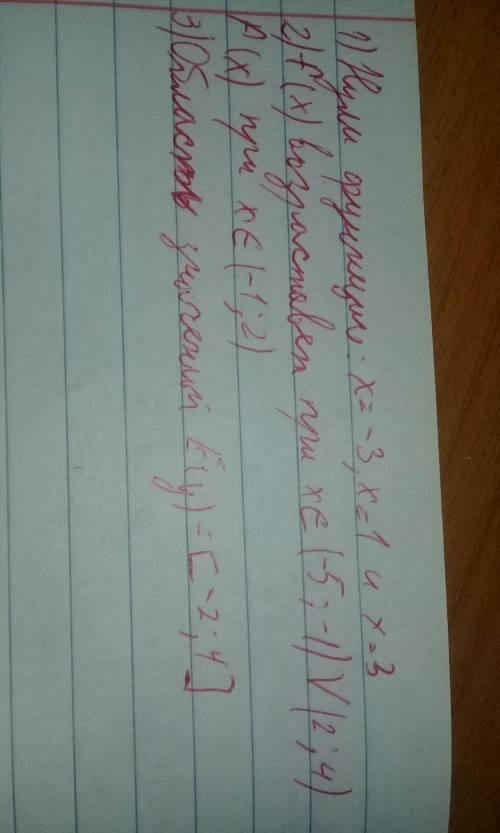 1) Нули функции: x = -3, x = 1 и x = 3
2) f(x) возрастает при x ∈ (-5; -1) V (2; 4)
f(x) при x ∈ (-1; 2)
3) Область значений E(y) = [-2; 4]